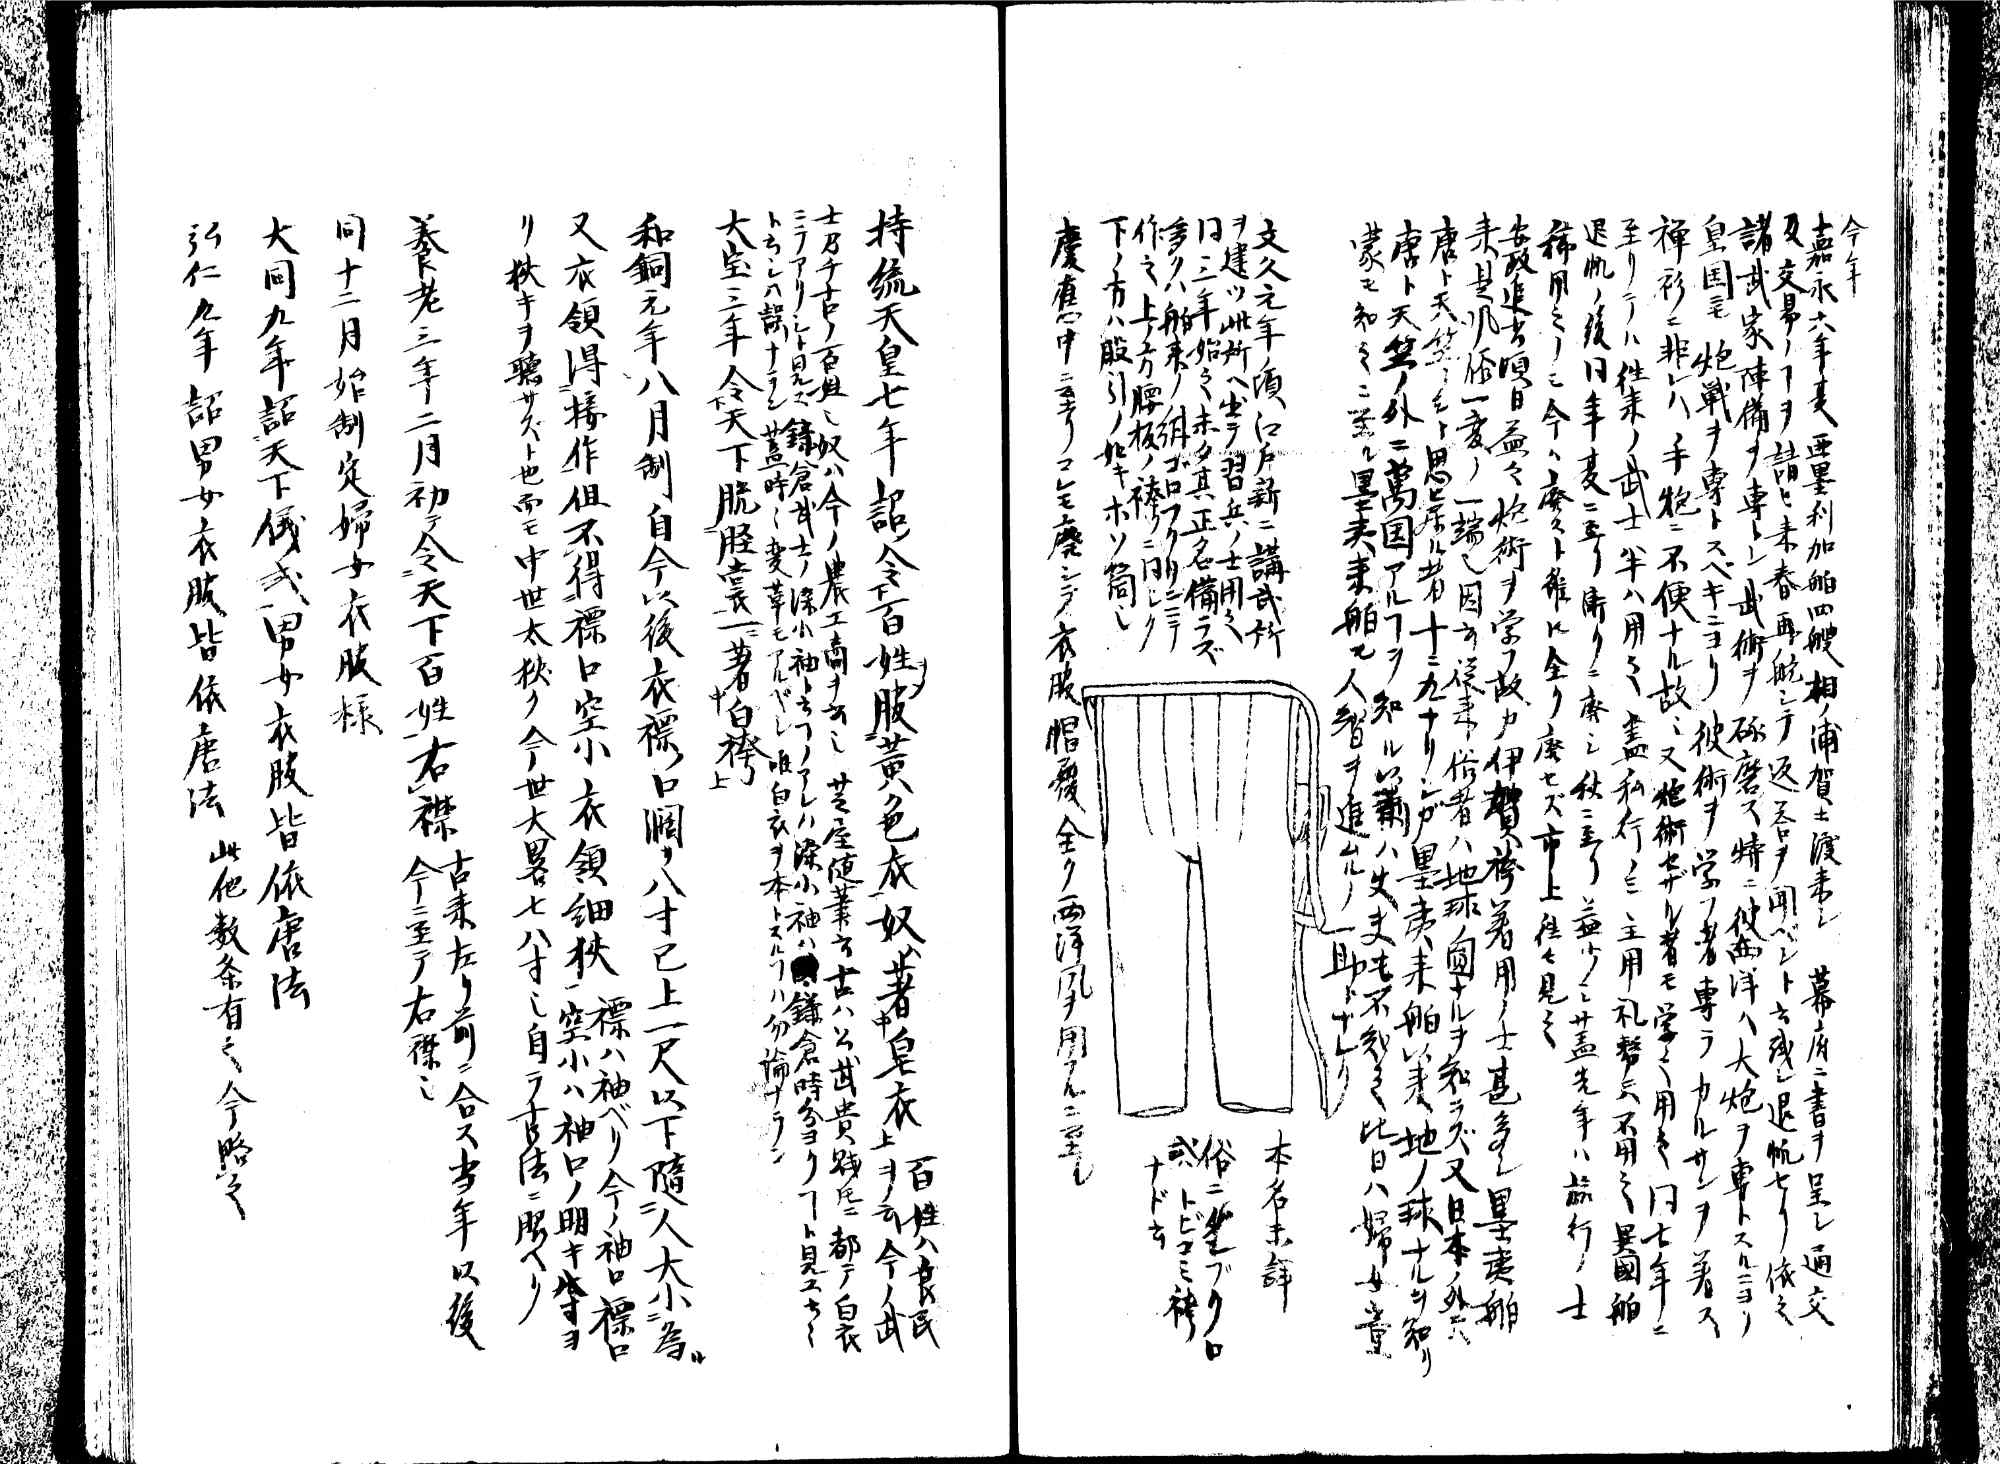 今年
嘉永六年夏亜墨利加舶四艘相ノ浦賀ニ渡来シ　幕府ニ書ヲ呈シ通交
及交易ノコヲ請ヒ来春再航シテ返答ヲ聞ベシト云残シ退帆セリ依之
諸武家陣備ヲ専トシ武術ヲ研磨ス特ニ彼西洋ハ大炮ヲ専トスルニヨリ
皇国モ炮戦ヲ専トスベキニヨリ彼術ヲ学フ者専ラカルサンヲ着ス
襌衫ニ非レハ手炮ニ不便ナル故ニ又炮術セザル者モ学之用之同七年ニ
至リテハ往来ノ武士半ハ用之盡私行ノミ主用礼務ニハ不用之異國舶
退帆ノ後同年夏ニ至リ漸クニ廃シ秋ニ至リ益少シ蓋先年ハ旅行ノ士
稀用之ノミ今ハ廃スト雖ヒ全ク廃セズ市上往々見之
安政追者頃日益々炮術ヲ学フ故カ伊賀袴着用ノ士甚多シ墨夷舶
来是風俗一変ノ一端也因云従来俗者ハ地球ノ圓ナルヲ知ラズ又日本ノ外ニハ
唐ト天竺ノミト思ヒ居ル者十ニ九ナリシガ墨夷来舶以来地ノ球ナルヲ知リ
唐ト天竺ノ外ニ萬国アルコヲ知ル以前ハ丈夫モ不知之此日ハ婦女童
蒙モ知之ニ至ル墨夷来舶モ人智ヲ進ムルノ一助トナレリ
文久元年頃江戸新ニ講武所
ヲ建ツ此所ヘ出テ習兵ノ士用之
同三年始之未タ其正名備ラズ
多クハ舶来ノ絹ゴロフクリンニテ
作之上ノ方腰板ノ襞ニ同シク
下ノ方ハ股引ノ如キホソ筒也
慶應中ニ至リコレモ廃シテ衣服帽履全ク西洋風ヲ用フルニ至ル
本名未詳
俗ニ筮ブクロ
或ハトビコミ袴
ナド云
持統天皇七年詔令百姓服黄色衣奴ハ著皂衣　上ヲ云今ノ武
百姓ハ良民
士乃チ古ノ百姓也奴ハ今ノ農工商ヲ云シ芝屋随筆云古ハ公武貴賤民ニ都テ白衣
ニテアリシト見ユ鎌倉武士ノ染小袖ト云フノアレハ染小袖ハ鎌倉時分ヨクコト見エタリ
ト云シハ誤ナラン蓋時々変革モアルベシ唯白衣ヲ本トスルコハ勿論ナラン
大宝三年令天下脱脛裳一著白袴
和銅元年八月制自今以後衣褾口濶サ八寸已上一尺以下隨人大小為
又衣領得接作但不得褾口窄小衣領細狭　褾ハ袖ベリ今ノ袖口褾口
窄小ハ袖口ノ明キ
リ狭キヲ聴サズト也而モ中世太狭ク今世大畧七八寸也自ラ古法ニ服ヘリ
養老三年二月初テ令天下百姓右襟　古来左リ前ニ合ス当年以後
今ニ至テ右襟也
同十二月始制定婦女衣服様
大同九年詔天下儀式男女衣服皆依唐法
弘仁九年詔男女衣服皆依唐法　此他数条有之今略之